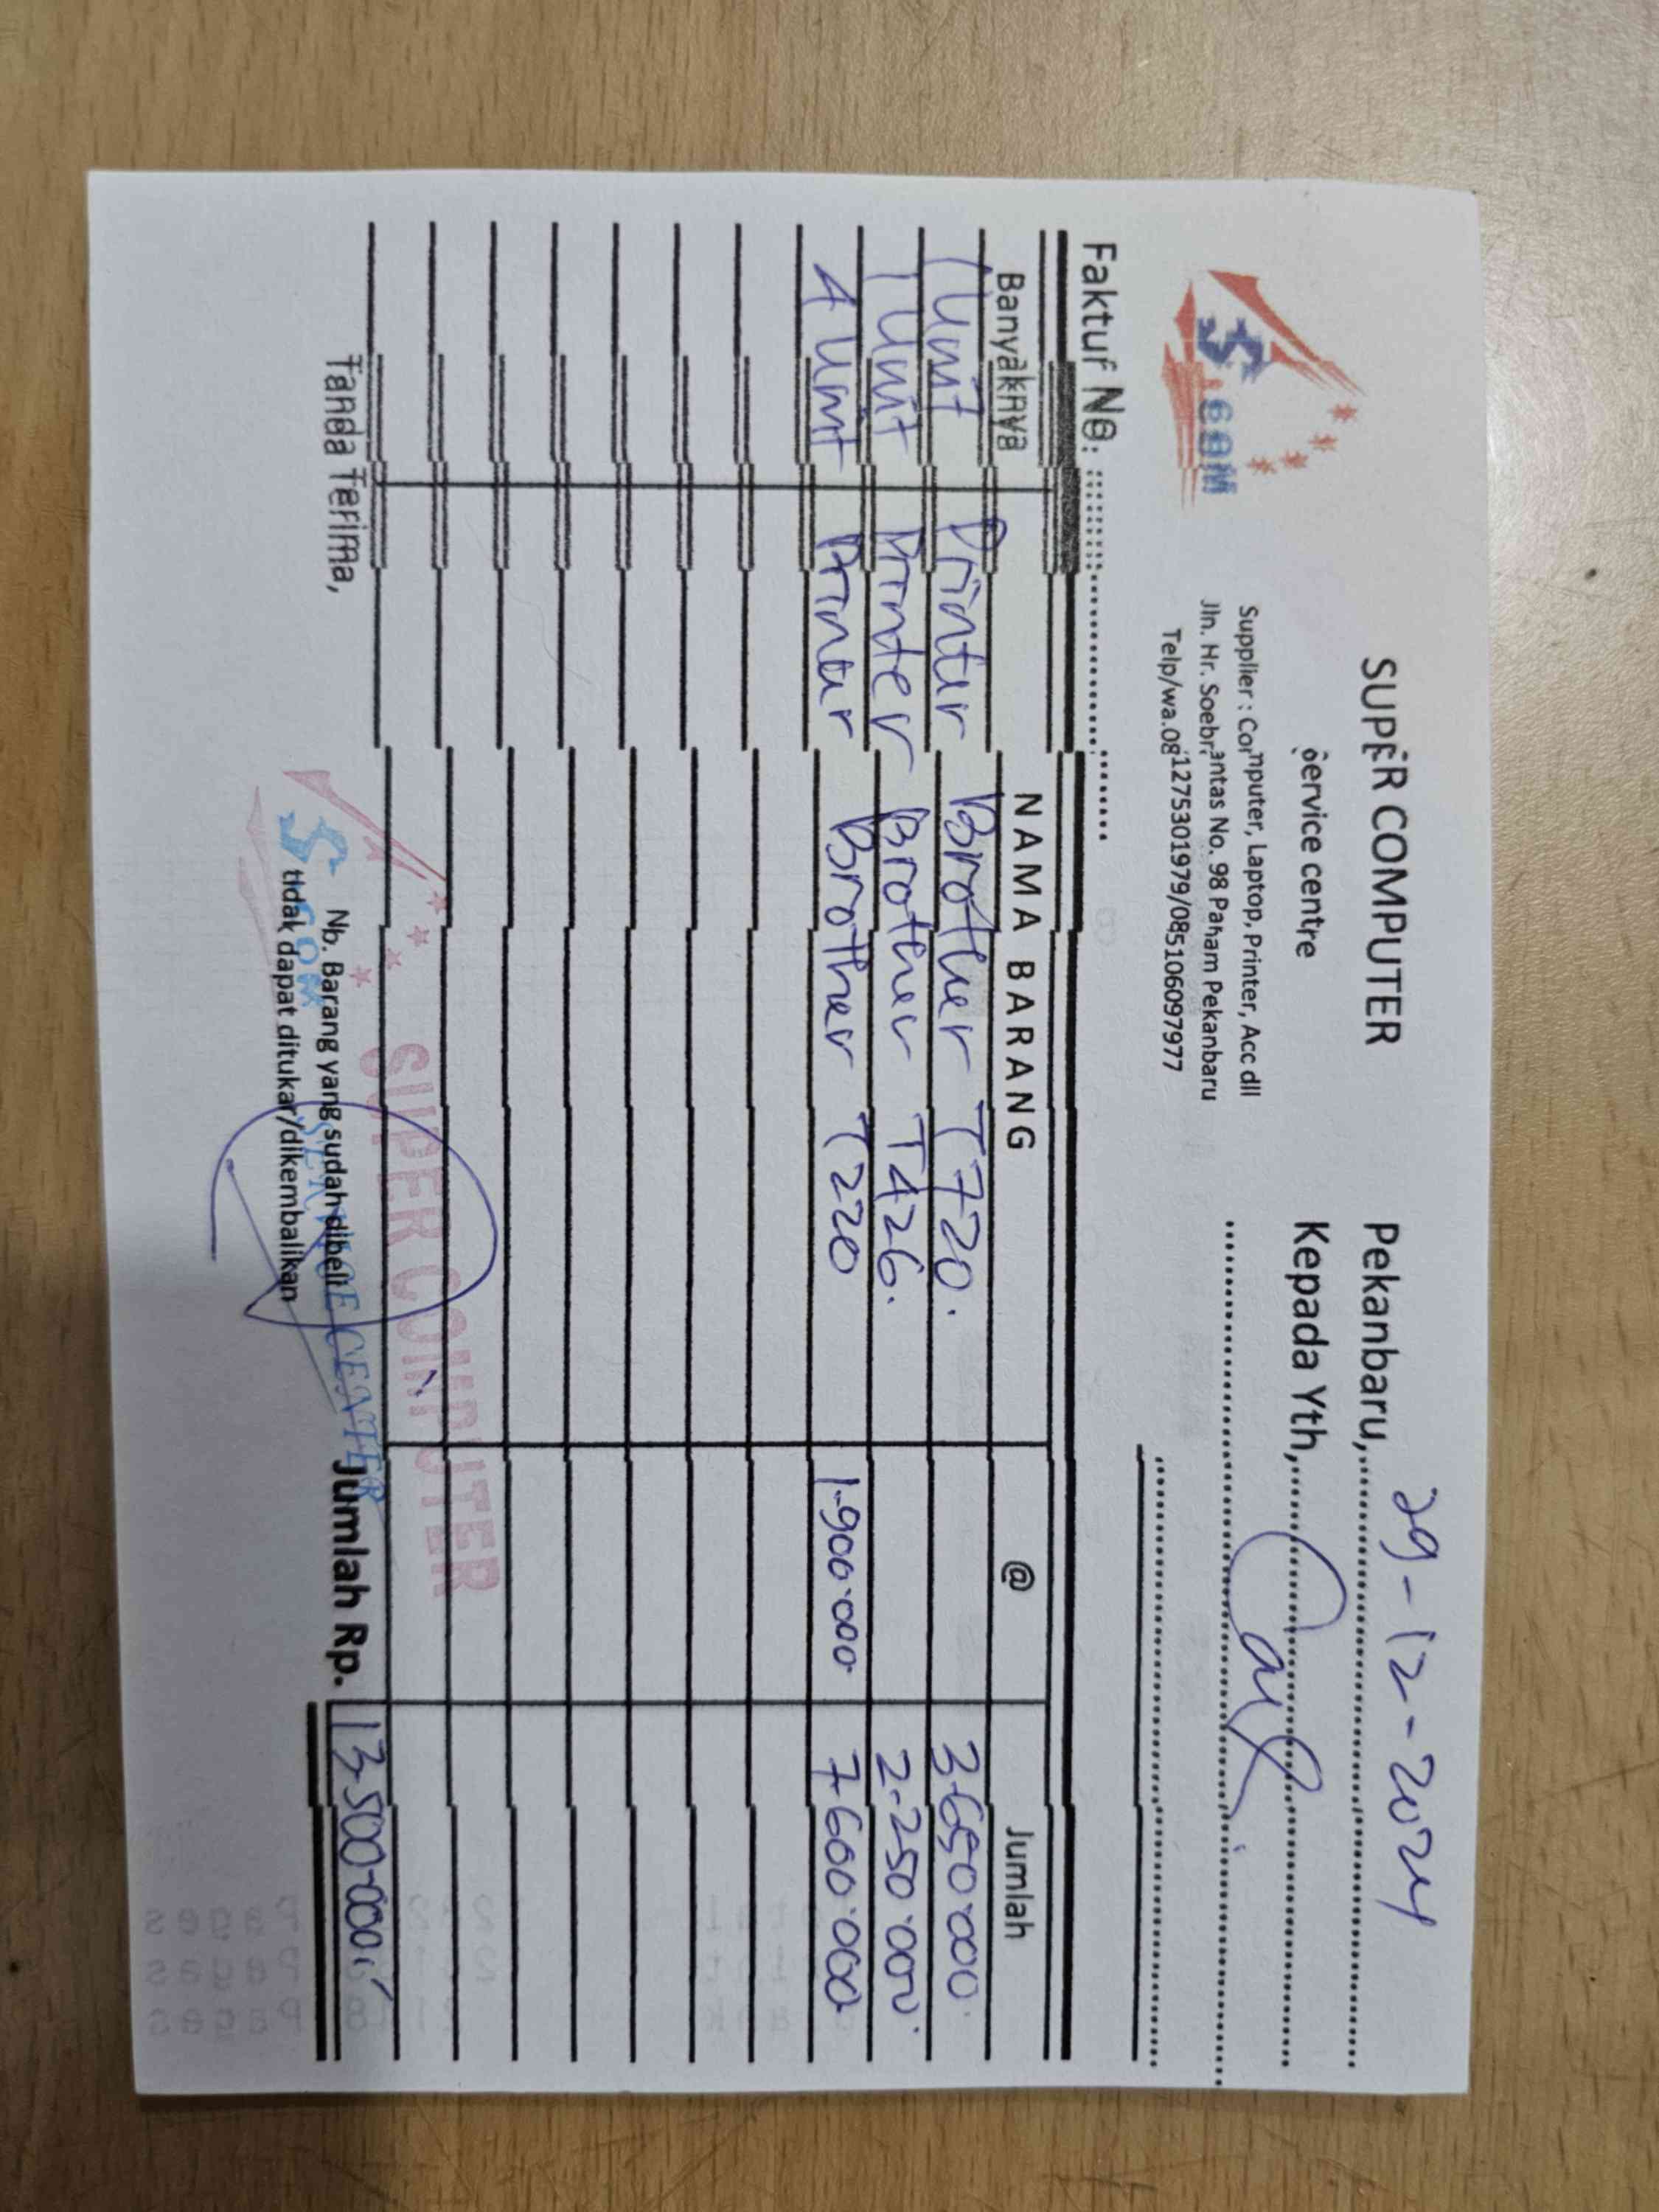 S COM
SUPER COMPUTER
Service centre
Supplier : Computer, Laptop, Printer, Acc dll
Jln. Hr. Soebrantas No. 98 Paham Pekanbaru
Telp/wa.081275301979/085106097977
Pekanbaru, 29-12-2024
Kepada Yth,
Faktur No.
Banyaknya NAMA BARANG @ Jumlah
1 Unit Printer Brother T720. 3.650.000.
1 Unit Printer Brother T426. 2.250.000.
4 Unit Printer Brother T220 1.900.000 7.600.000
SUPER COMPUTER
S COM
SERVICE CENTER
Tanda Terima,
Nb. Barang yang sudah dibeli
tidak dapat ditukar/dikembalikan
Jumlah Rp. 13.500.000